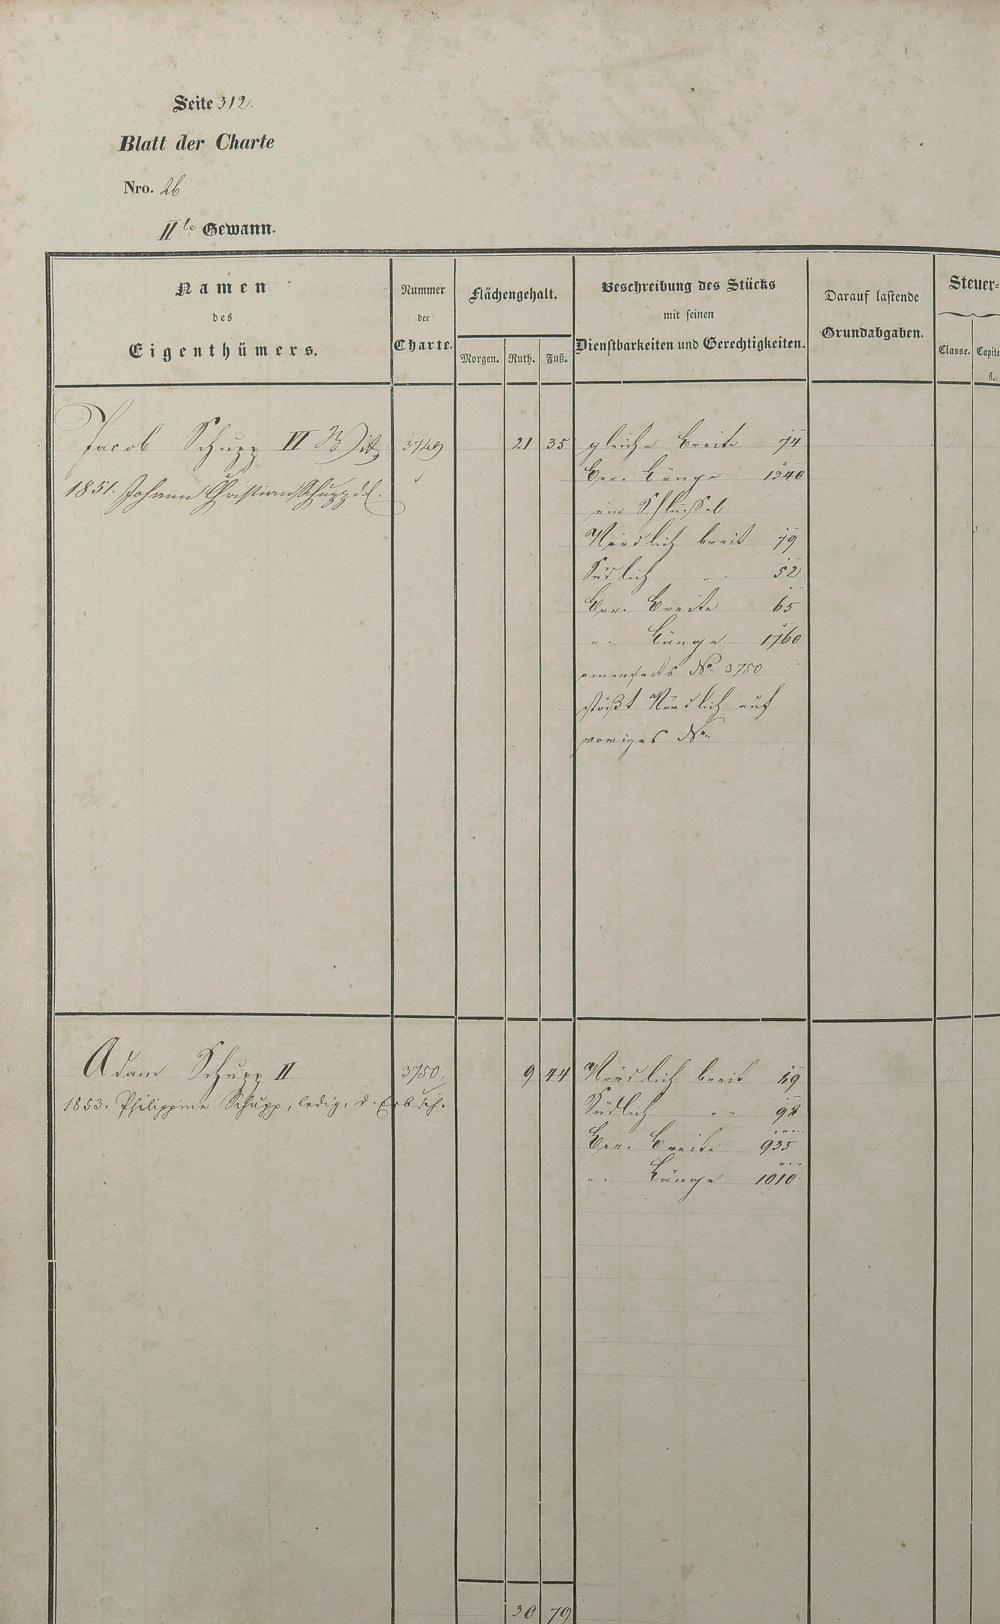 Seite 312.
Blatt der Charte
Nro. 26
IIte Gewann.
Namen
des
Eigenthümers.
Nummer
der
Charte.
Flächengehalt.
Morgen. Ruth. Fuß.
Beschreibung des Stücks
mit seinen
Dienstbarkeiten und Gerechtigkeiten.
Darauf lastende
Grundabgaben.
Steuer-
Classe. Capita
fl.
Jacob Schupp VI 3749 21 35 gleiche Breite 74
1851. Johann Christian Schupp
Ber. Länge 1340
ein Schlüssel
Nördlich breit 79
Südlich " 52
Ber. Breite 65
" Länge 1760
einerseits No. 3750
stößt Nördlich auf
voriges No.
Adam Schupp II 3750. 9 44 Nördlich breit 89
1853. Philippine Schupp, ledig, d. Erbsch.
Südlich " 98
Ber. Breite 935
" Länge 1010
30 79